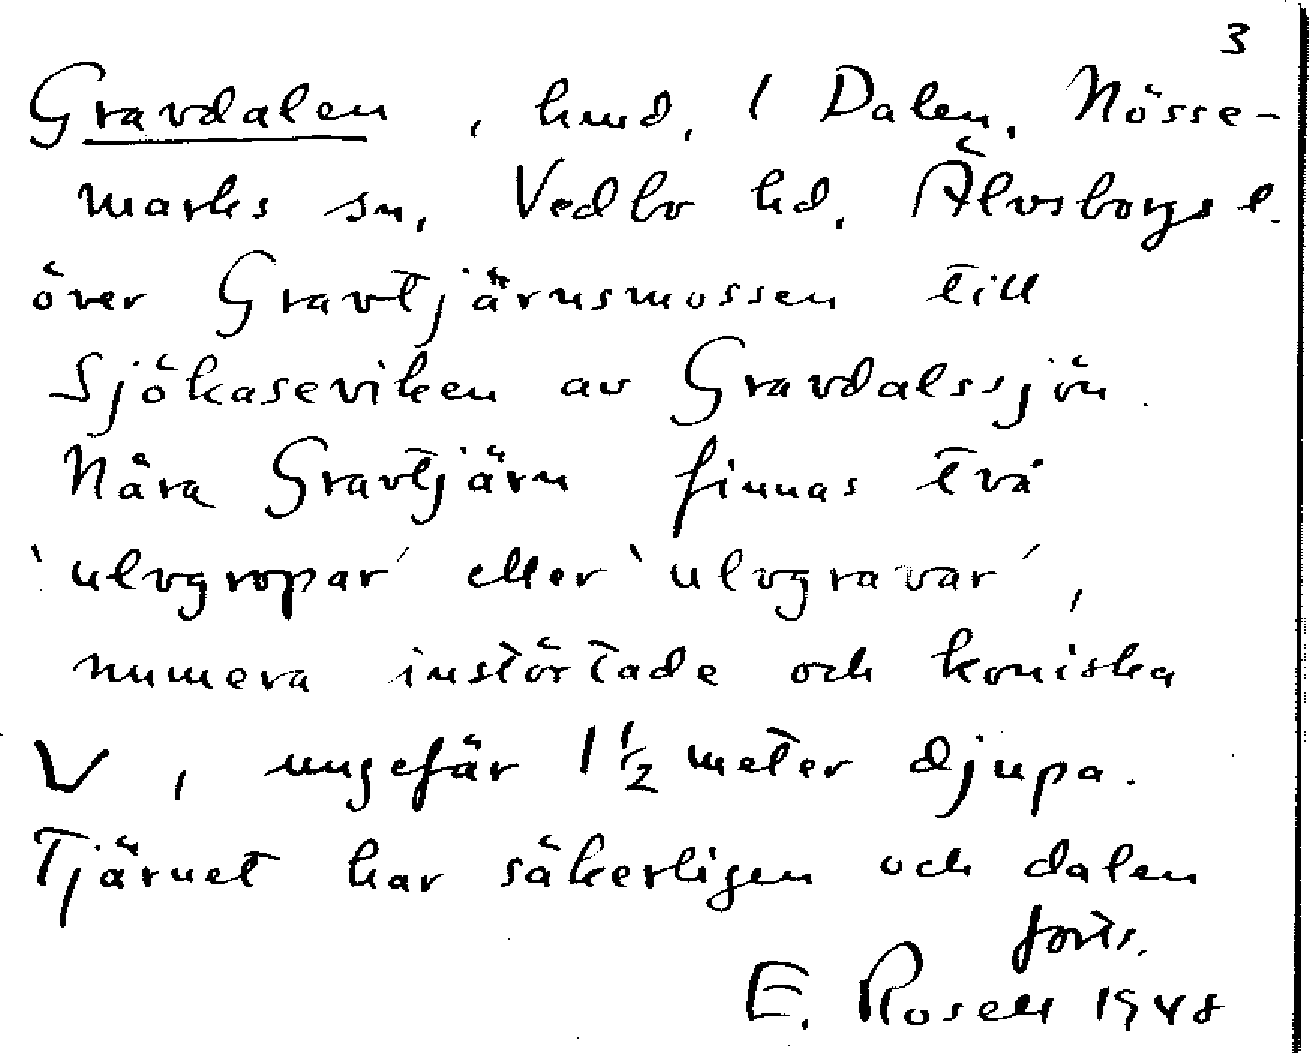 3
Gravdalen, hmd. 1 Dalen, Nösse-
marks sn, Vedbo hd. Älvsborgs l.
över Gravtjärnsmossen till
Sjökaseviken av Gravdalssjön.
Nära Gravtjärn finnas två
‘ulvgropar’ eller ‘ulvgravar’,
numera instörtade och koniska
V, ungefär 1 1/2 meter djupa.
Tjärnet har säkerligen och dalen
forts.
E. Rosell 1948